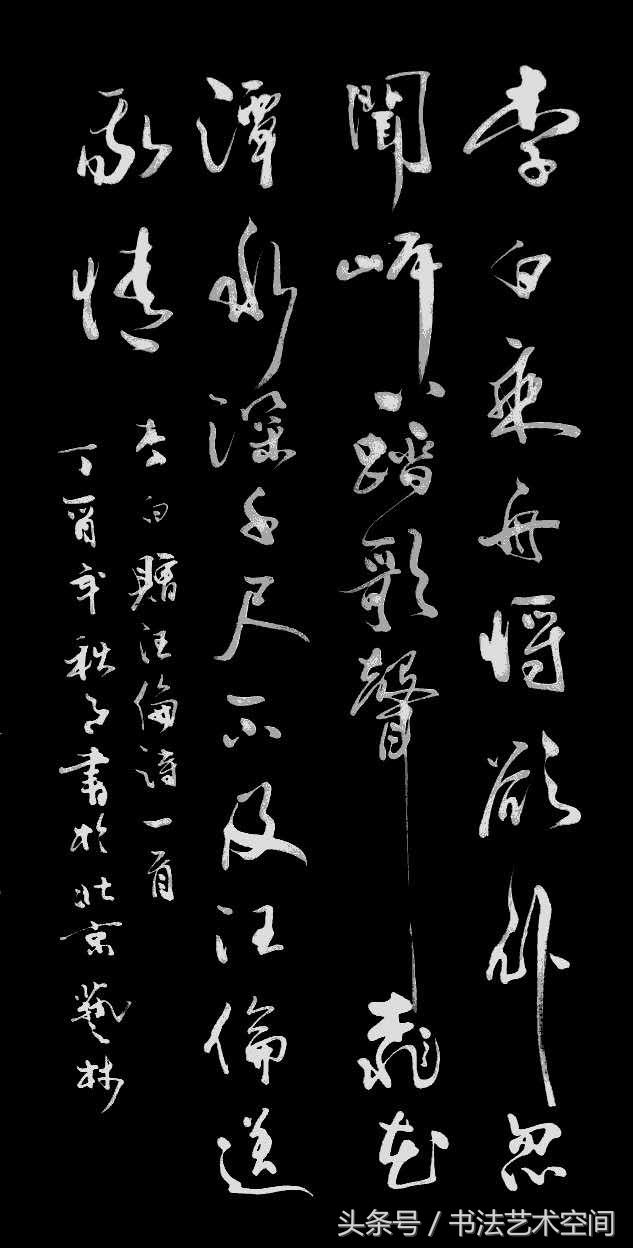 李白乘舟將欲行忽
聞岸上踏歌聲桃花
潭水深千尺不及汪倫送
我情
李白贈汪倫詩一首
丁酉年秋月書於北京藝林
头条号 / 书法艺术空间